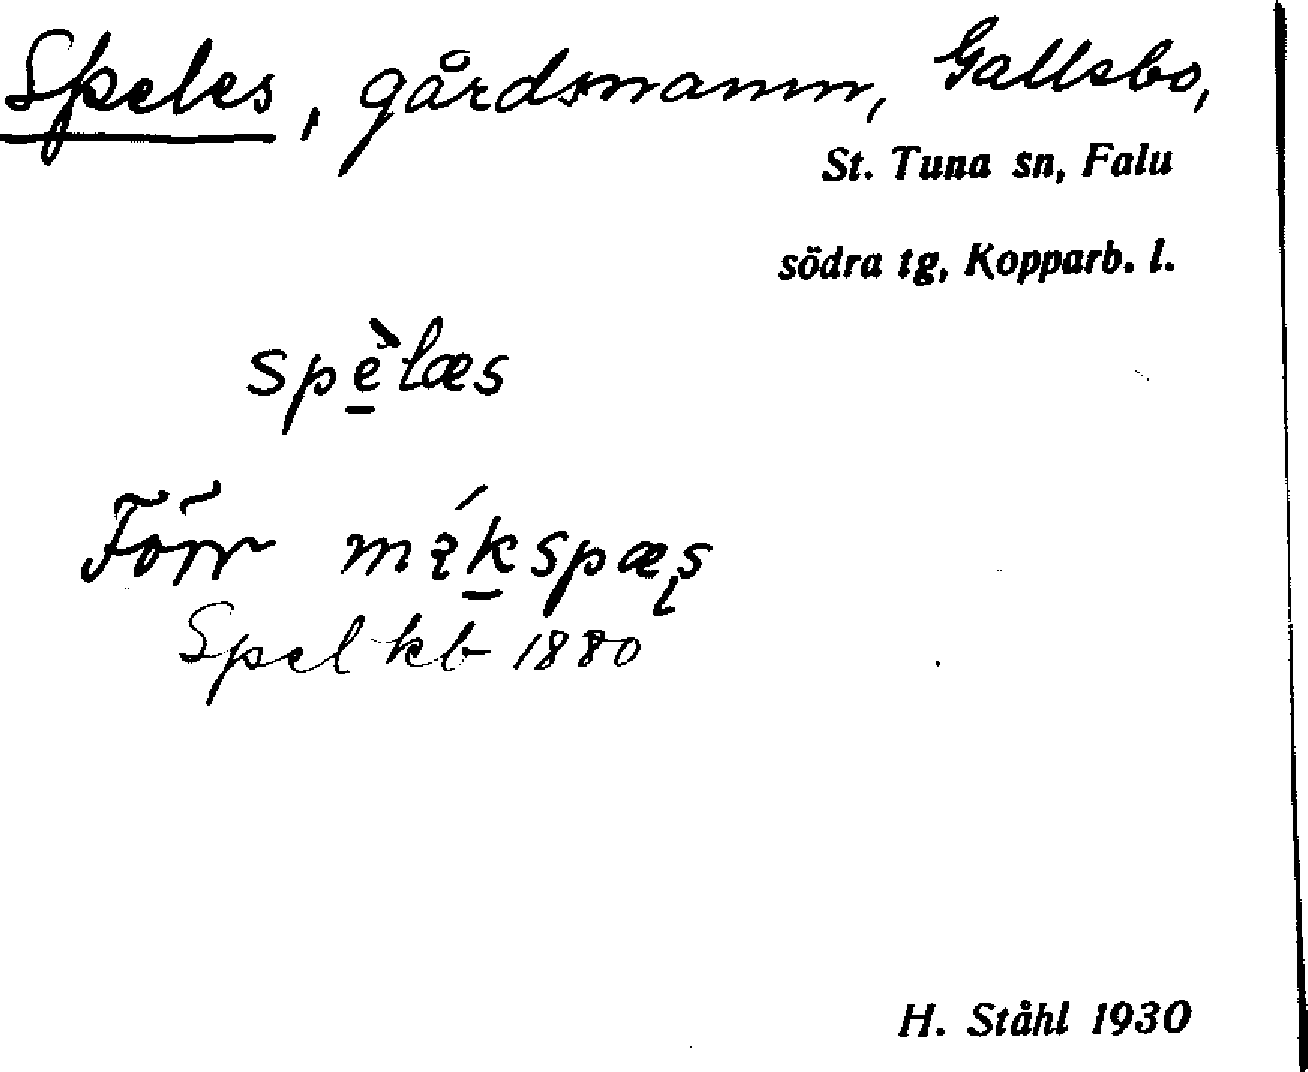 Speles, gårdsnamn, Gallsbo,
St. Tuna sn, Falu
södra tg, Kopparb. l.
spèlæs
Förr
Spel kb 1880
H. Ståhl 1930